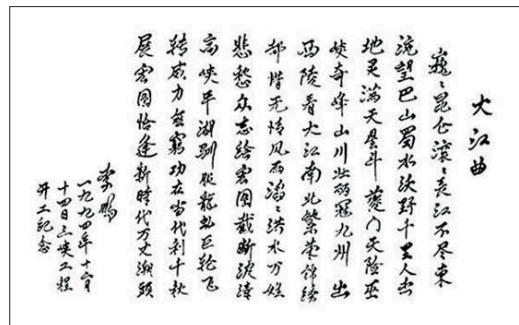 大江曲
巍々昆仑滚々长江不尽东
流望巴山蜀水沃野千里人杰
地灵满天星斗夔门天险巫
峡奇峰山川壮丽冠九州出
西陵看大江南北繁荣锦绣
却惜无情风雨滔々洪水万姓
悲愁众志绘宏图截断波涛
高峡平湖驯服龙虬巨轮飞
转威力无穷功在当代利千秋
展宏图恰逢新时代万丈潮头
李鹏
一九九四年十二月
十四日三峡工程
开工纪念